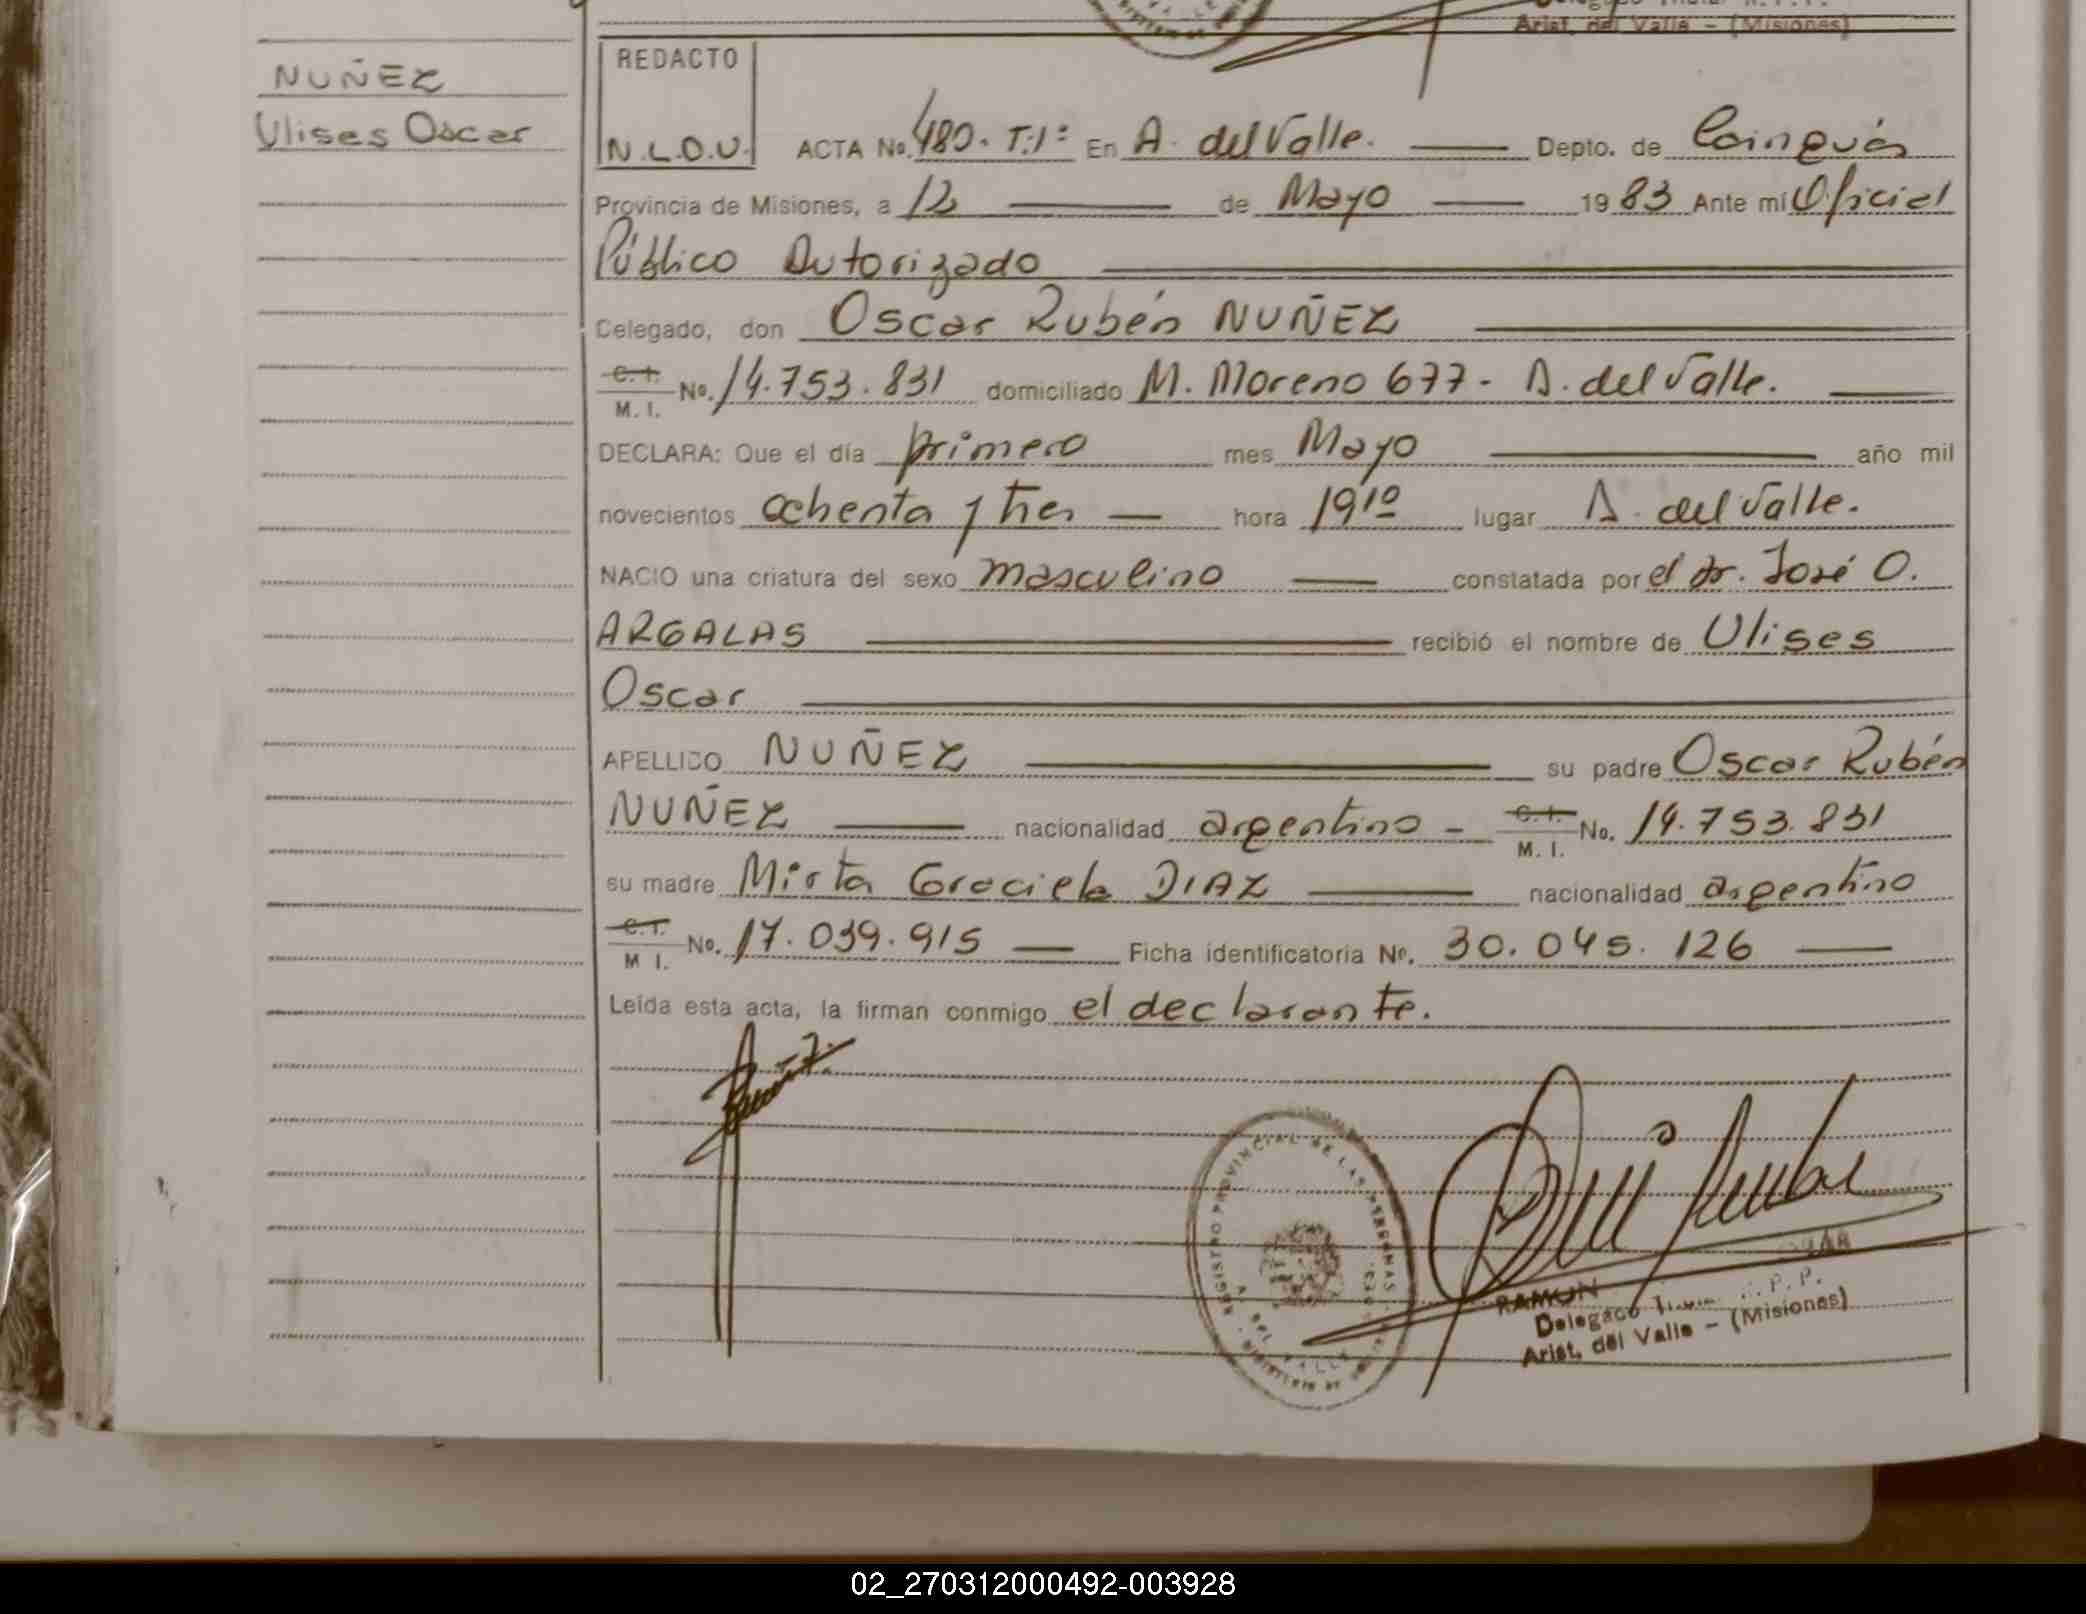 Arist. del Valle - (Misiones)
NUÑEZ
Ulises Oscar
REDACTO
N.L.O.U.
ACTA No. 480. T:1º En A. del Valle. Depto. de Cainguás
Provincia de Misiones, a 12 de Mayo 1983 Ante mí Oficial
Público Autorizado
Celegado, don Oscar Rubén NUÑEZ
C.I. M.I. No. 14.753.831 domiciliado M. Moreno 677- A. del Valle.
DECLARA: Que el día primero mes Mayo año mil
novecientos ochenta y tres hora 19¹⁰ lugar A. del Valle.
NACIO una criatura del sexo masculino constatada por el dr. José O.
ARGALAS recibió el nombre de Ulises
Oscar
APELLIDO NUÑEZ su padre Oscar Rubén
NUÑEZ nacionalidad argentino - C.I. M.I. No. 14.753.831
su madre Mirta Graciela DIAZ nacionalidad argentino
C.I. M I. No. 17.039.915 Ficha identificatoria No. 30.045.126
Leída esta acta, la firman conmigo el declarante.
REGISTRO PROVINCIAL DE LAS PERSONAS
A. DEL VALLE
RAMON
Delegado P.P.
Arist. del Valle - (Misiones)
02_270312000492-003928